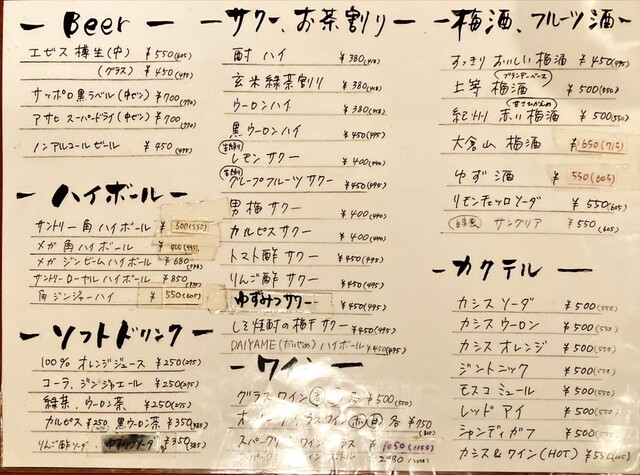 Beer
エビス 樽生(中) ¥550(605)
(グラス) ¥450(495)
サッポロ黒ラベル(中ビン) ¥700(770)
アサヒ スーパードライ(中ビン) ¥700(770)
ノンアルコールビール ¥450(495)
ハイボール
サントリー 角 ハイボール ¥500(550)
メガ 角 ハイボール ¥900(990)
メガ ジンビームハイボール ¥680
サントリーローヤルハイボール ¥850
角 ジンジャーハイ ¥550(605)
ソフトドリンク
100% オレンジジュース ¥250(275)
コーラ、ジンジャエール ¥250(275)
緑茶、ウーロン茶 ¥250(275)
カルピス¥250 黒ウーロン茶 ¥350(385)
りんご酢ソーダ ゆずみつソーダ ¥350(385)
サワー、お茶割り
酎ハイ ¥380(418)
玄米緑茶割り ¥380(418)
ウーロンハイ ¥380(418)
黒ウーロンハイ ¥450(495)
生搾り レモンサワー ¥400(440)
生搾り グレープフルーツサワー ¥450(495)
男梅サワー ¥400(440)
カルピスサワー ¥400(440)
トマト酢サワー ¥450(495)
りんご酢サワー ¥450(495)
ゆずみつサワー ¥450(495)
しそ焼酎の梅干サワー ¥450(495)
DAIYAME(だいやめ)ハイボール ¥450(495)
ワイン
グラスワイン 各¥500(550)
ハウスワイン 赤白 各¥750
スパークリングワイン グラス ¥1050(1155)
スパークリングワイン ボトル
梅酒、フルーツ酒
すっきりおいしい梅酒 ¥450(495)
ブランデーベース
上等 梅酒 ¥500(550)
紀州 赤い梅酒 ¥500(550)
大倉山 梅酒 ¥650(715)
ゆず酒 ¥550(605)
リモンチェッロソーダ ¥550(605)
自家製 サングリア ¥550(605)
カクテル
カシスソーダ ¥500(550)
カシスウーロン ¥500(550)
カシスオレンジ ¥500(550)
ジントニック ¥500(550)
モスコミュール ¥500(550)
レッドアイ ¥500(550)
シャンディガフ ¥500(550)
カシス&ワイン(HOT) ¥550(605)